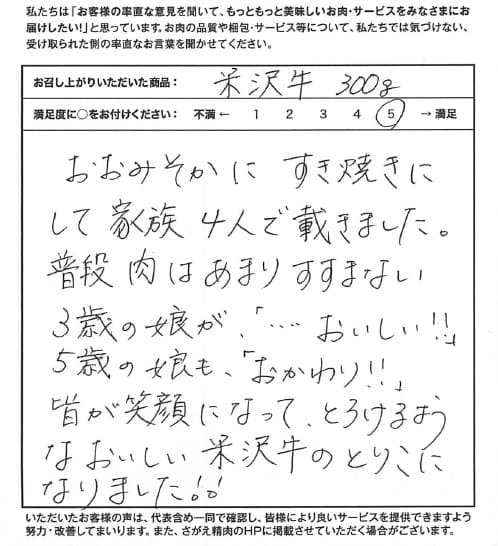 私たちは「お客様の率直な意見を聞いて、もっともっと美味しいお肉・サービスをみなさまにお
届けしたい!」と思っています。お肉の品質や梱包・サービス等について、私たちでは気づけない、
受け取られた側の率直なお言葉を聞かせてください。
お召し上がりいただいた商品: 米沢牛 300g
満足度に○をお付けください: 不満 ← 1 2 3 4 5 → 満足
おおみそかに すき焼きに
して 家族 4人で載きました。
普段 肉は あまり すすまない
3歳の娘が、「…… おいしい!!」
5歳の娘も、「おかわり!!」
皆が笑顔になって、とろけるよう
なおいしい 米沢牛のとりこに
なりました!!
いただいたお客様の声は、代表含め一同で確認し、皆様により良いサービスを提供できますよう
努力・改善してまいります。また、さがえ精肉のHPに掲載させていただく場合がございます。